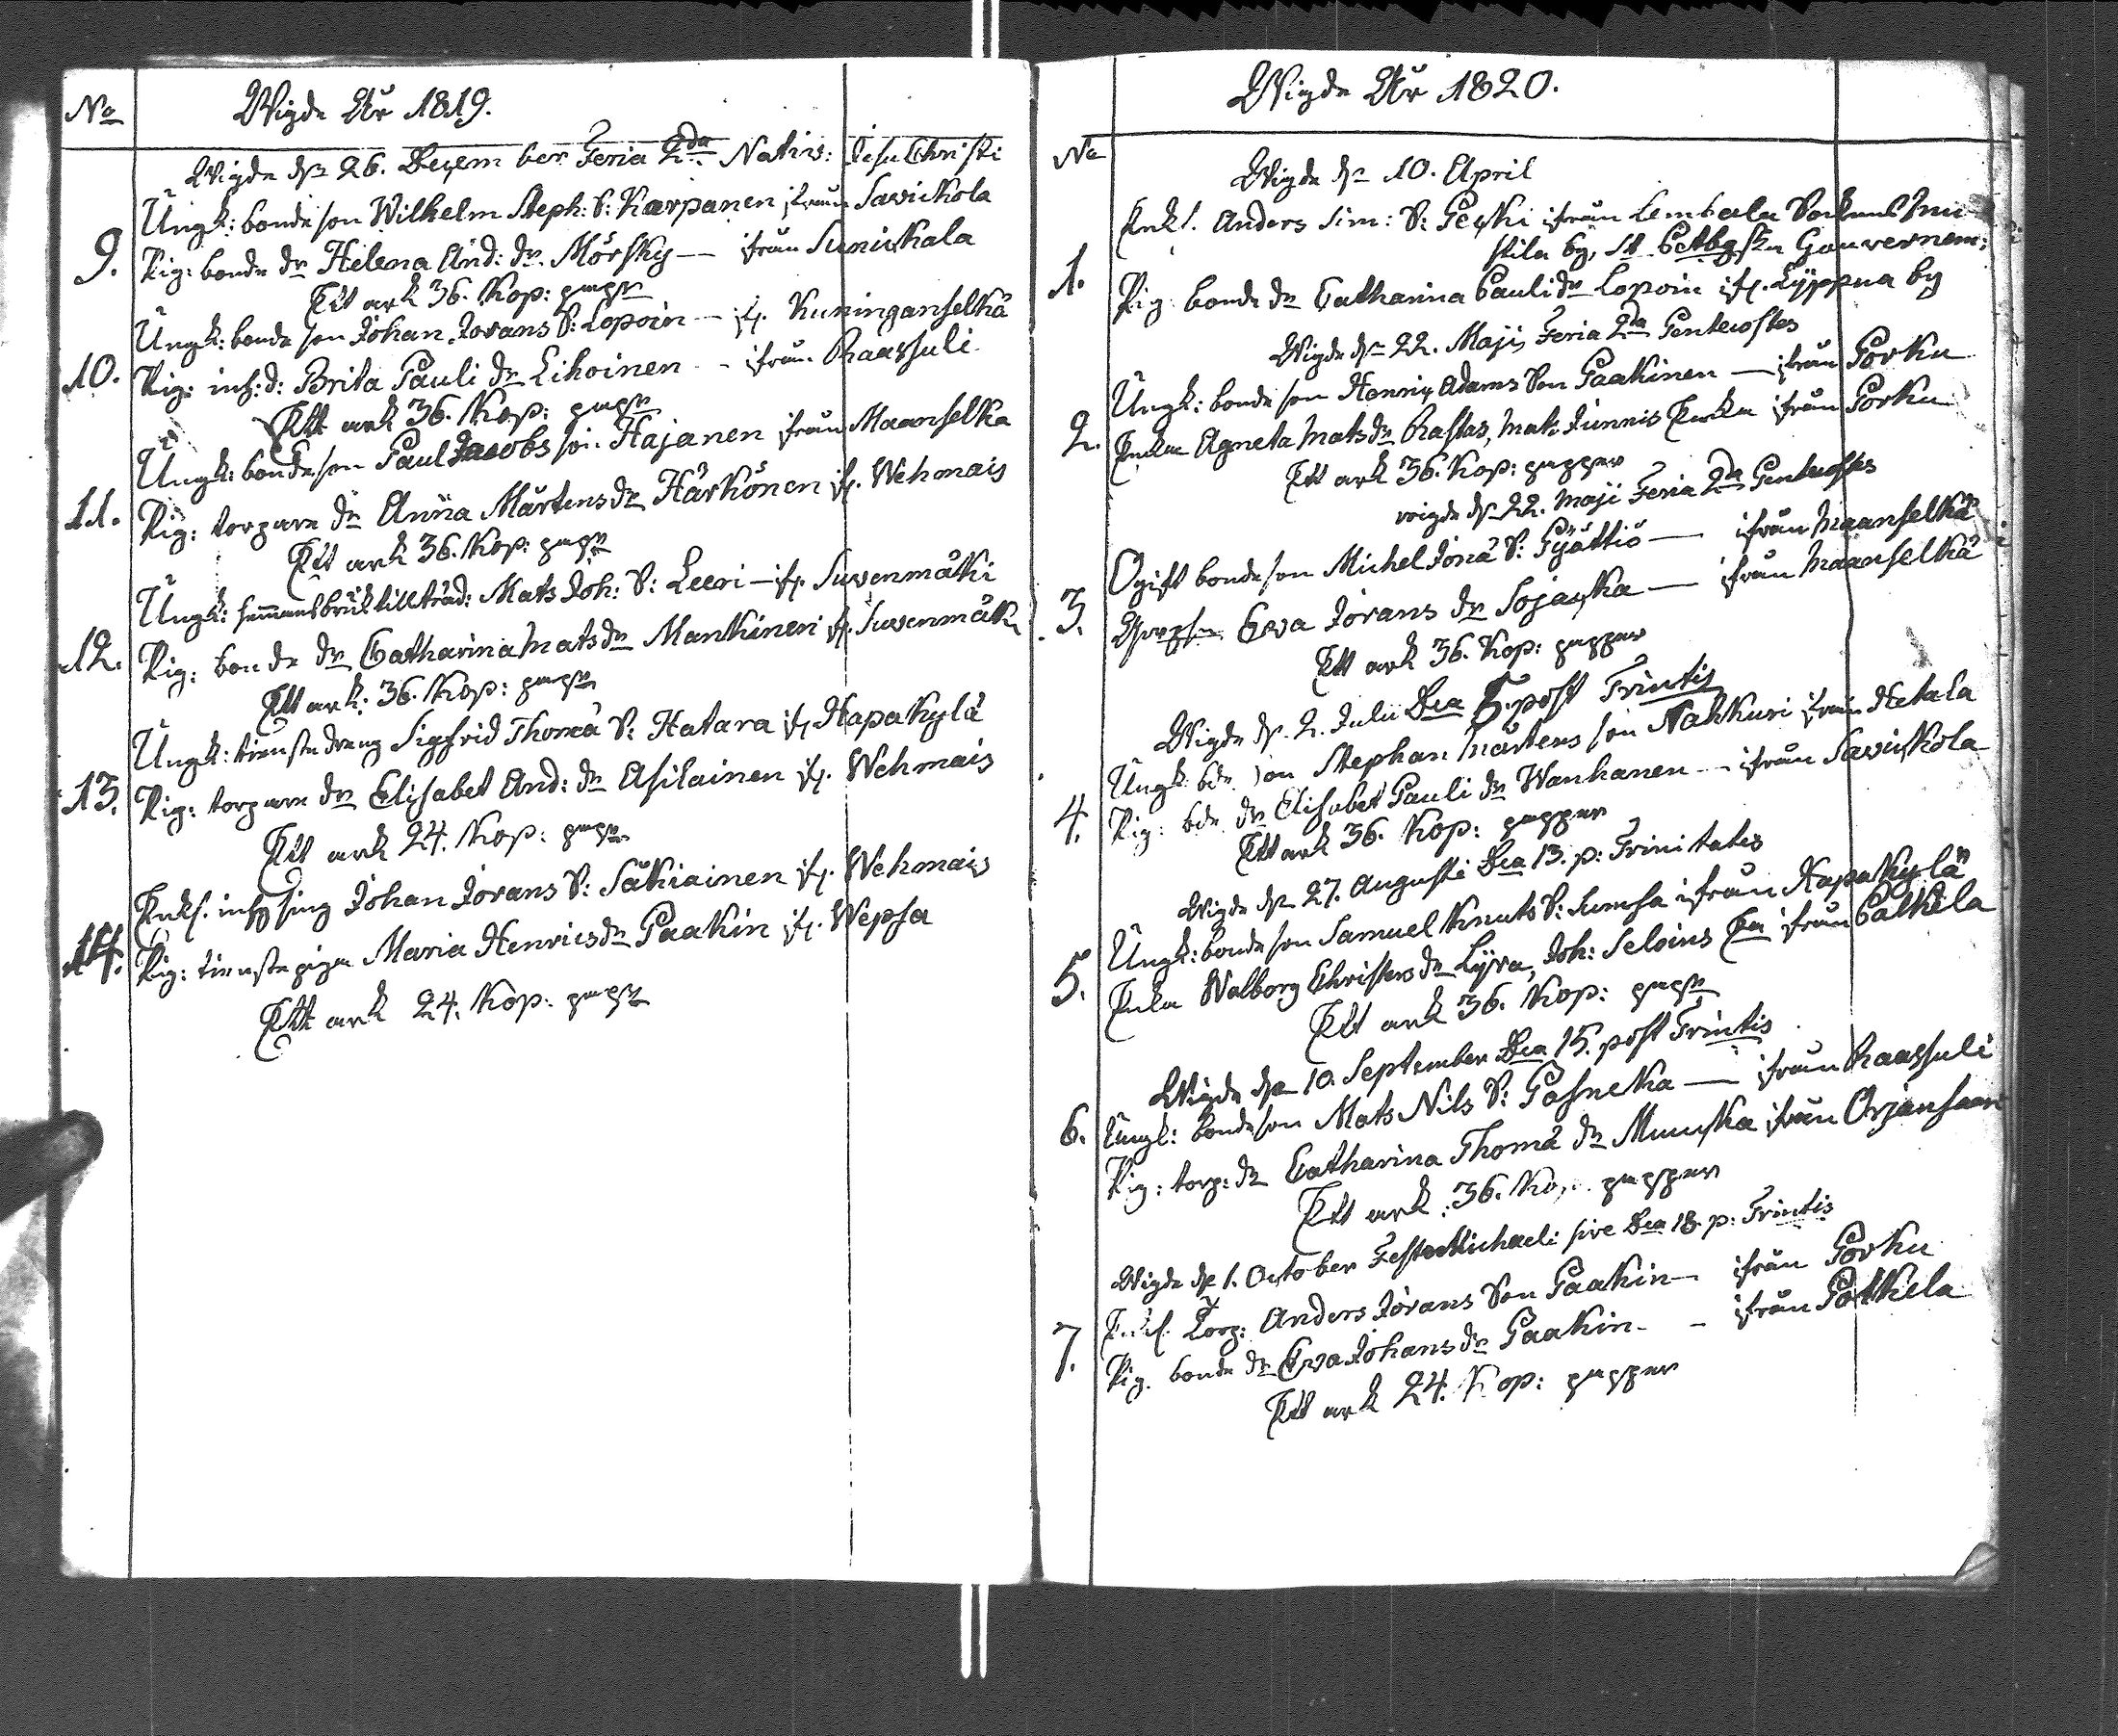 No
Wigde År 1819.
Wigde dn 26. December Feria 2da Nativ: Jesu Christi
9.
Ungk: bonde son Wilhelm Steph: S: Karpanen ifrån Savickola
Pig: bonde dr Helena And: dr Mörsky — ifrån Sunickala
Ett ark 36. Kop: papr
10.
Ungk: bonde son Johan Jörans S: Lopoin — ifr. Kuninganselkä
Pig: inh: d: Brita Pauli dr Likoinen — ifrån Raassuli
Ett ark 36. Kop: papr
11.
Ungk: bonde son Paul Jacobs son Hajanen ifrån Maanselkä
Pig: torpare dr Anna Mårtens dr Härkönen ifr. Wehmais
Ett ark 36. Kop: papr
12.
Ungk: hemmansbruk tillträd: Mats Joh: S: Leeri — ifr. Suvenmäki
Pig: bonde dr Catharina Mats dr Mankinen ifr. Suvenmäk
Ett ark: 36. Kop: papr
13.
Ungk: tienste dräng Sigfrid Thomä S: Hatara ifr. Hapakylä
Pig: torpare dr Elisabet And: dr Asilainen ifr. Wehmais
Ett ark 24. Kop: papr
14.
Enkl. inhysing Johan Jörans S: Säkiainen ifr. Wehmais
Pig: tienste piga Maria Henrics dr Paakin ifr. Wepsa
Ett ark 24. Kop: papr
Wigde År 1820.
No
Wigde dn 10. April
1.
Enkl. Anders Sim: S: Pecki ifrån Lembala Sockens
stila by, St. Petbgska Gouvernem:
Pig bonde dr Catharina Pauli dr Lopoin ifr. Lyppua by
Wigde dn 22. Maji, Feria 2da Pentecostes
2.
Ungk: bonde son Henric Adams Son Paakinen — ifrån Porku
Enkan Agneta Mats dr Rastas, Mats Junnis Enka ifrån Porku
Ett ark 36. Kop: papper
wigde dn 22. Maji Feria 2da Pentecostes
3.
Ogift bonde son Michel Jonä S: Pyöttiö — ifrån Maanselkä
Eva Jörans dr Sojacka — ifrån Maanselkä
Ett ark 36. Kop: papper
Wigde dn 2. Julii Dca 5. post Trintis
4.
Ungk: bde son Stephan Mårtens son Nakkuri ifrån Hetala
Pig: bde dr Elisabet Pauli dr Wanhanen — ifrån Savickola
Ett ark 36. Kop: papper
Wigde dn 27. Augusti Dca 13. p: Trinitatis
5.
Ungk: bonde son Samuel Knuts S: Sumsa ifrån Hapakylä
Enka Walborg Christers dr Lyra, Joh: Seloins Ea ifrån Palkela
Ett ark 36. Kop: papr
Wigde dn 10. September Dca 15. post Trintis
6.
Ungk: bonde son Mats Nils S: Pasneka — ifrån Raassuli
Pig: torp: dr Catharina Thomä dr Muuska ifrån Orjansaari
Ett ark: 36. Kop papper
Wigde dn 1. October Festo Michaeli sive Dca 18. p: Trintis
7.
Enkl. Torp: Anders Jörans Son Paakin — ifrån Porku
Pig. bonde dr Eva Johans dr Paakin — ifrån Palkela
Ett ark 24. Kop: papper